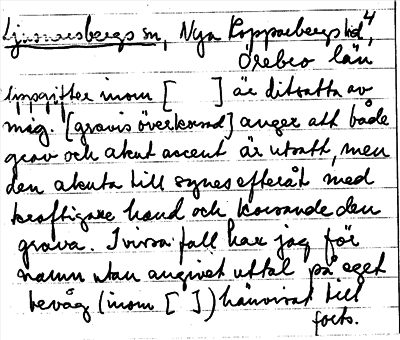 Ljusnarsbergs sn, Nya Kopparbergs bd 4,
Örebro län
Uppgifter inom [ ] är ditsatta av
mig. [gravis överkorsad] anger att både
grav och akut accent är utsatt, men
den akuta till synes efteråt med
kraftigare hand och korsande den
grava. I vissa fall har jag för
namn utan angivet uttal på eget
bevåg (inom [ ]) hänvisat till
forts.